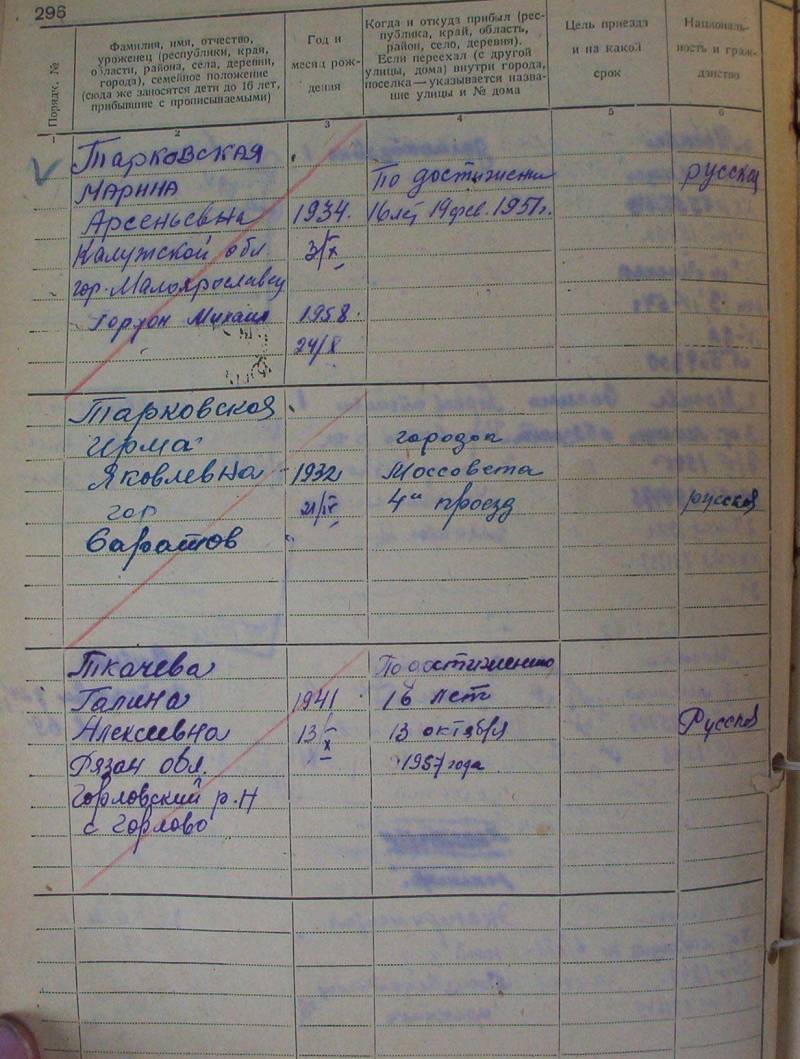 296
Порядк. №
Фамилия, имя, отчество,
уроженец (республики, края,
области, района, села, деревни,
города), семейное положение
(сюда же заносятся дети до 16 лет,
прибывшие с прописываемыми)
Год и
месяц рож-
дения
Когда и откуда прибыл (рес-
публика, край, область,
район, село, деревня).
Если переехал (с другой
улицы, дома) внутри города,
поселка — указывается назва-
ние улицы и № дома
Цель приезда
и на какой
срок
Националь-
ность и граж-
данство
1 2 3 4 5 6
Тарковская
Марина По достижени русская
Арсеньевна 1934. 16 лет 19 фев. 1951г.
Калужской обл 3/X
гор. Малоярославец
Гордон Михаил 1958.
24/X
Тарковская
Ирма городок
Яковлевна 1932 Моссовета
гор 4й проезд русская
Саратов
Ткачева По достижению
Галина 1941 16 лет
Алексеевна 13/X 13 октября Русская
Рязан обл. 1957 года
Горловский р.н
с Горлово